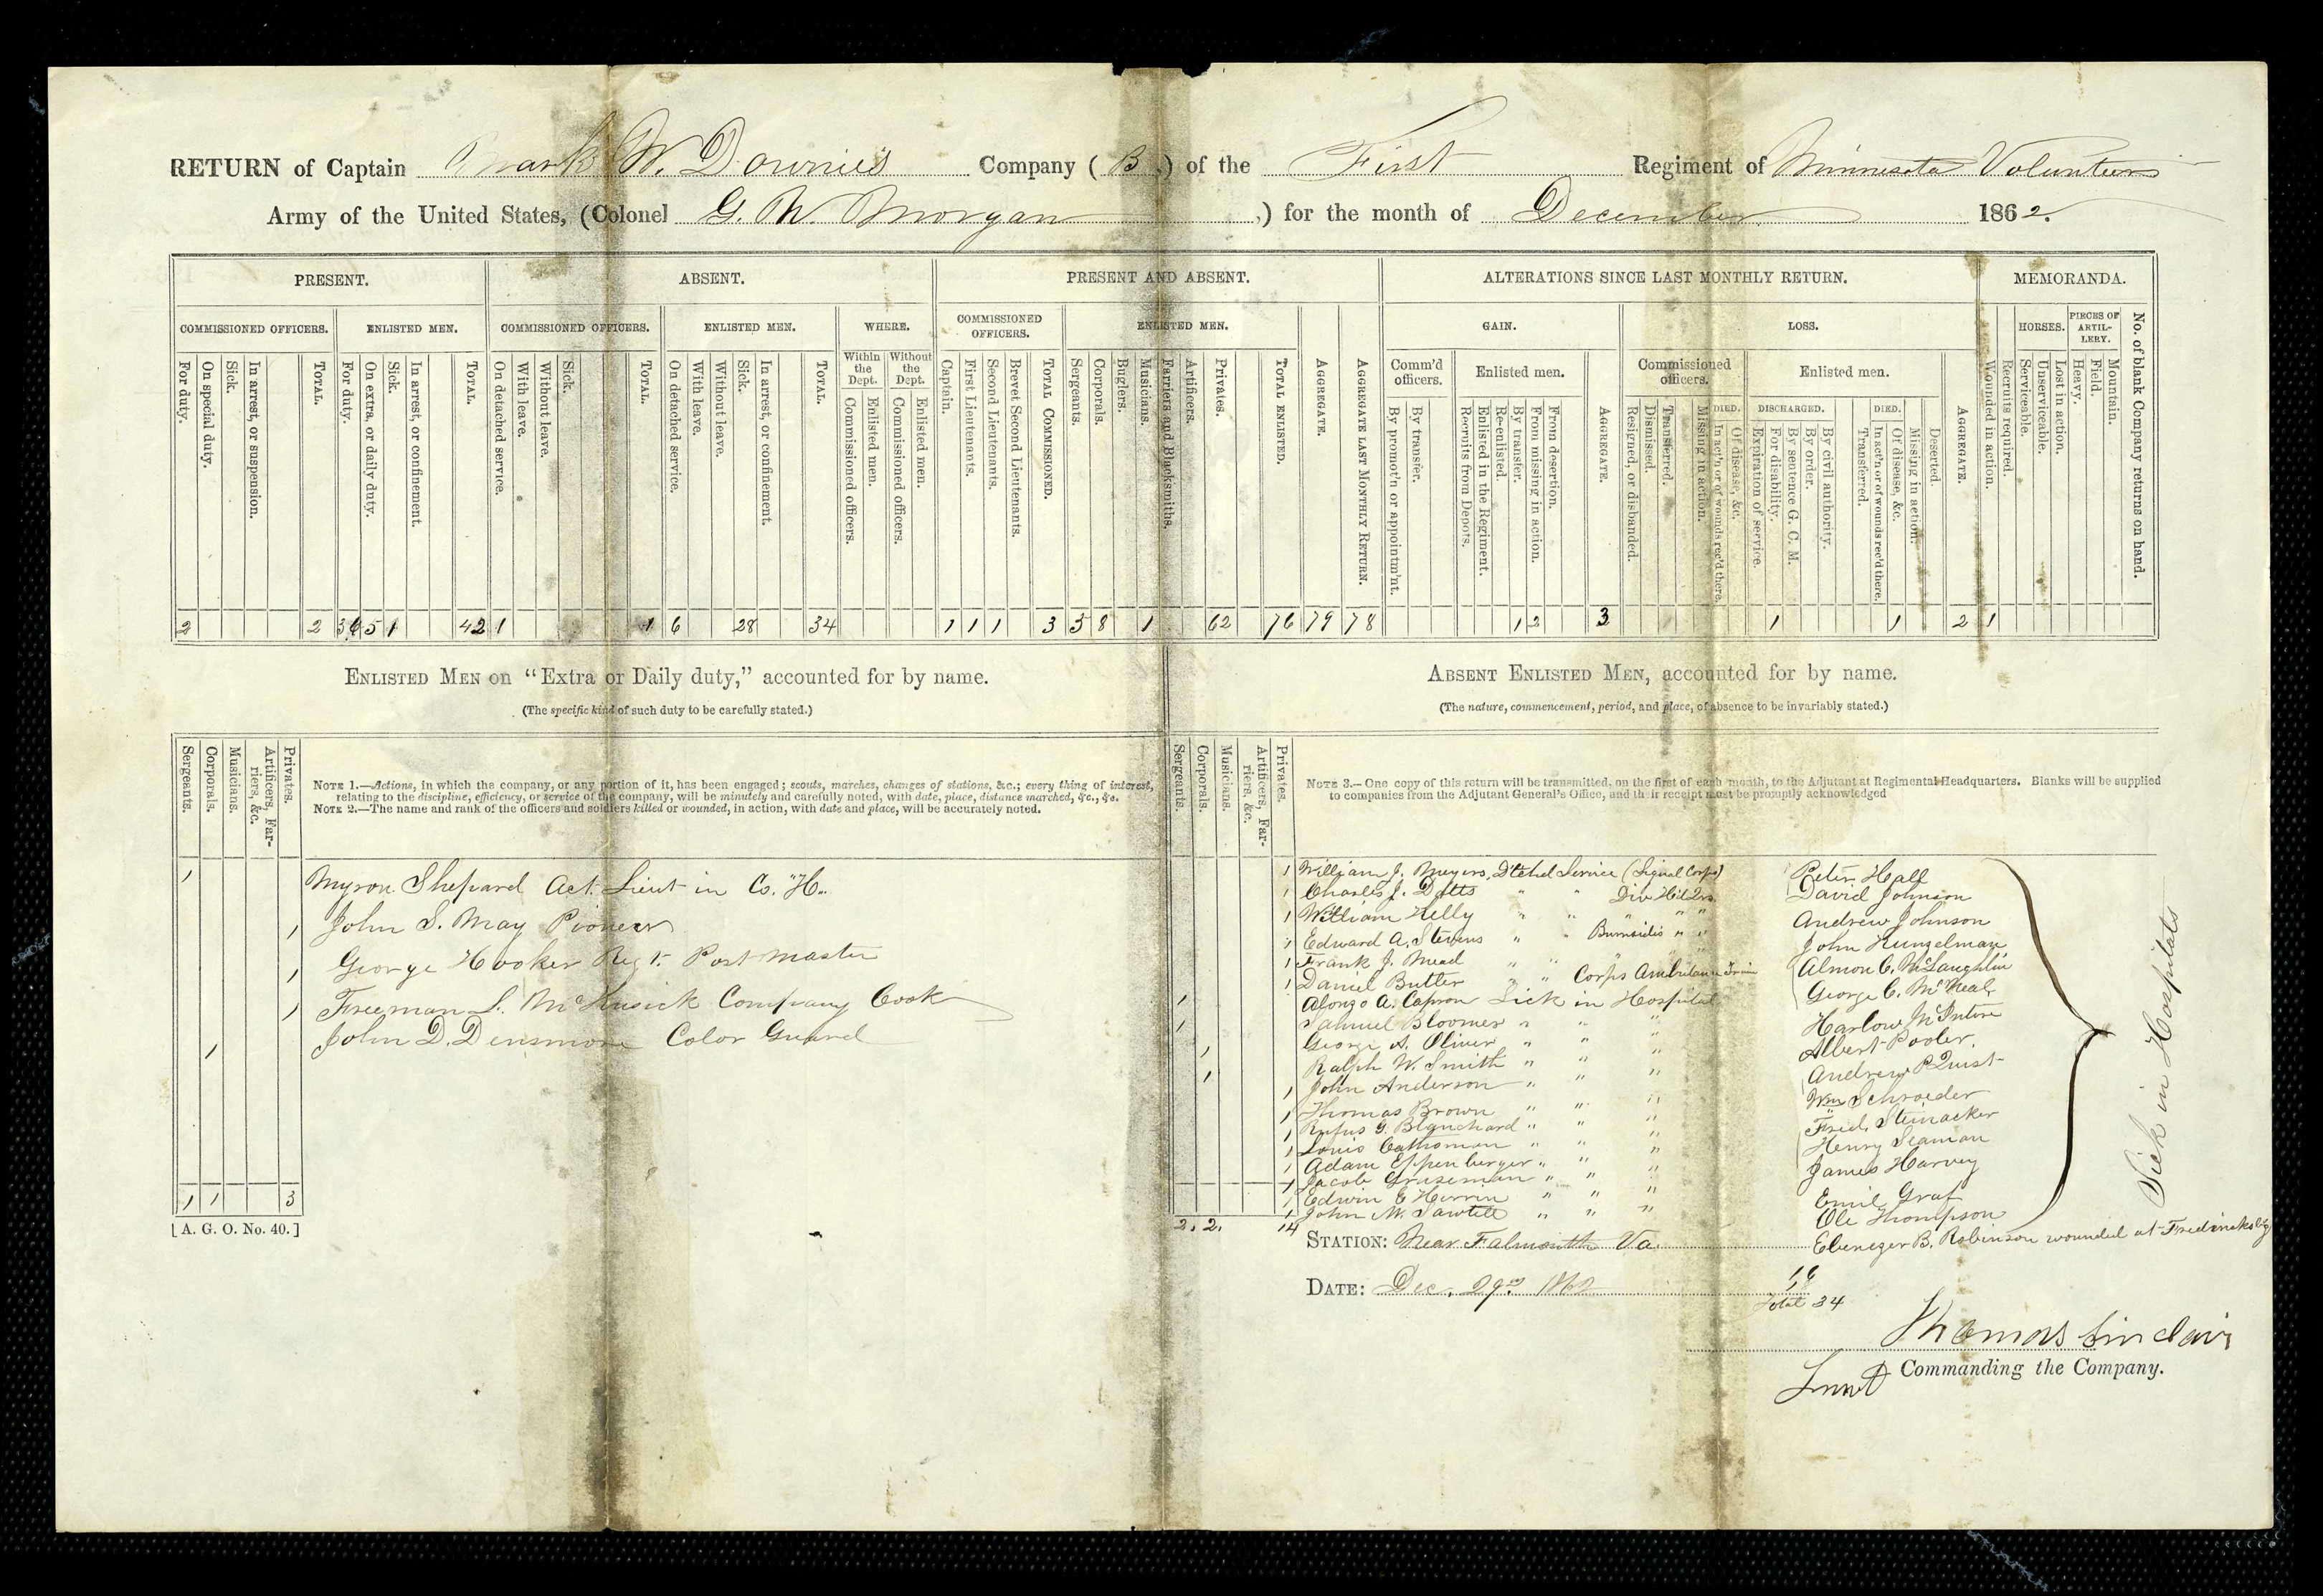 RETURN of Captain Mark W. Downie's Company ( B ) of the First Regiment of Minnesota Volunteers
Army of the United States, (Colonel G. N. Morgan ) for the month of December 1862.
PRESENT. ABSENT. PRESENT AND ABSENT. ALTERATIONS SINCE LAST MONTHLY RETURN. MEMORANDA.
COMMISSIONED OFFICERS. ENLISTED MEN. COMMISSIONED OFFICERS. ENLISTED MEN. WHERE. COMMISSIONED OFFICERS. ENLISTED MEN. GAIN. LOSS. HORSES. PIECES OF ARTILLERY. No. of blank Company returns on hand.
Within the Dept. Without the Dept. Comm'd officers. Enlisted men. Commissioned officers. Enlisted men.
DIED. DISCHARGED. DIED.
For duty.
On special duty.
Sick.
In arrest, or suspension.
TOTAL.
For duty.
On extra, or daily duty.
Sick.
In arrest, or confinement.
TOTAL.
On detached service.
With leave.
Without leave.
Sick.
TOTAL.
On detached service.
With leave.
Without leave.
Sick.
In arrest, or confinement.
TOTAL.
Commissioned officers.
Enlisted men.
Commissioned officers.
Enlisted men.
Captain.
First Lieutenants.
Second Lieutenants.
Brevet Second Lieutenants.
TOTAL COMMISSIONED.
Sergeants.
Corporals.
Buglers.
Musicians.
Farriers and Blacksmiths.
Artificers.
Privates.
TOTAL ENLISTED.
AGGREGATE.
AGGREGATE LAST MONTHLY RETURN.
By promot'n or appointm'nt.
By transfer.
Recruits from Depots.
Enlisted in the Regiment.
Re-enlisted.
By transfer.
From missing in action.
From desertion.
AGGREGATE.
Resigned, or disbanded.
Dismissed.
Transferred.
Missing in action.
In act'n or of wounds rec'd there.
Of disease, &c.
Expiration of service.
For disability.
By sentence G. C. M.
By order.
By civil authority.
Transferred.
In act'n or of wounds rec'd there.
Of disease, &c.
Missing in action.
Deserted.
AGGREGATE.
Wounded in action.
Recruits required.
Serviceable.
Unserviceable.
Lost in action.
Heavy.
Field.
Mountain.
2 2 36 5 1 42 1 1 6 28 34 1 1 1 3 5 8 1 62 76 79 78 1 2 3 1 1 2 1
ENLISTED MEN on "Extra or Daily duty," accounted for by name.
(The specific kind of such duty to be carefully stated.)
Sergeants.
Corporals.
Musicians.
Artificers, Farriers, &c.
Privates.
NOTE 1.—Actions, in which the company, or any portion of it, has been engaged; scouts, marches, changes of stations, &c.; every thing of interest,
relating to the discipline, efficiency, or service of the company, will be minutely and carefully noted, with date, place, distance marched, &c., &c.
NOTE 2.—The name and rank of the officers and soldiers killed or wounded, in action, with date and place, will be accurately noted.
1 Myron Shepard Act. Lieut in Co. "H"
1 John S. May Pioneer
1 George Hooker Regt. Post master
1 Freeman L. McKusick Company Cook
1 John D. Densmore Color Guard
1 1 3
[ A. G. O. No. 40. ]
ABSENT ENLISTED MEN, accounted for by name.
(The nature, commencement, period, and place, of absence to be invariably stated.)
Sergeants.
Corporals.
Musicians.
Artificers, Farriers, &c.
Privates.
NOTE 3.—One copy of this return will be transmitted, on the first of each month, to the Adjutant at Regimental Headquarters. Blanks will be supplied
to companies from the Adjutant General's Office, and their receipt must be promptly acknowledged
1 William J. Meyers, Dtchd Service (Signal Corps)
1 Charles J. Dotts " " Div Hd Qrs
1 William Kelly " " " " "
1 Edward A. Stevens " " Burnsides " "
1 Frank J. Mead " " " " "
1 Daniel Butler " " Corps Ambulance Train
1 Alonzo A. Capron Sick in Hospital
1 Samuel Bloomer " " "
1 George A. Oliver " " "
1 Ralph W. Smith " " "
1 John Anderson " " "
1 Thomas Brown " " "
1 Rufus G. Blanchard " " "
1 Louis Cathoman " " "
1 Adam Eppenberger " " "
1 Jacob Gruseman " " "
1 Edwin C Herrin " " "
1 John M. Sawtell " " "
2. 2. 14
Peter Hall
David Johnson
Andrew Johnson
John Kunzelman
Almon C. McLaughlin
George C. McNeal
Harlow McIntire
Albert Pooler
Andrew P Quist
Wm Schroeder
Fred. Steinacker
Henry Seaman
James Harvey
Emil Graf
Ole Thompson
Ebenezer B. Robinson wounded at Fredricksbg
Sick in Hospitals
STATION: Near Falmouth Va.
DATE: Dec. 29th 1862
16
Total 34
Thomas Sinclair
Lieut Commanding the Company.